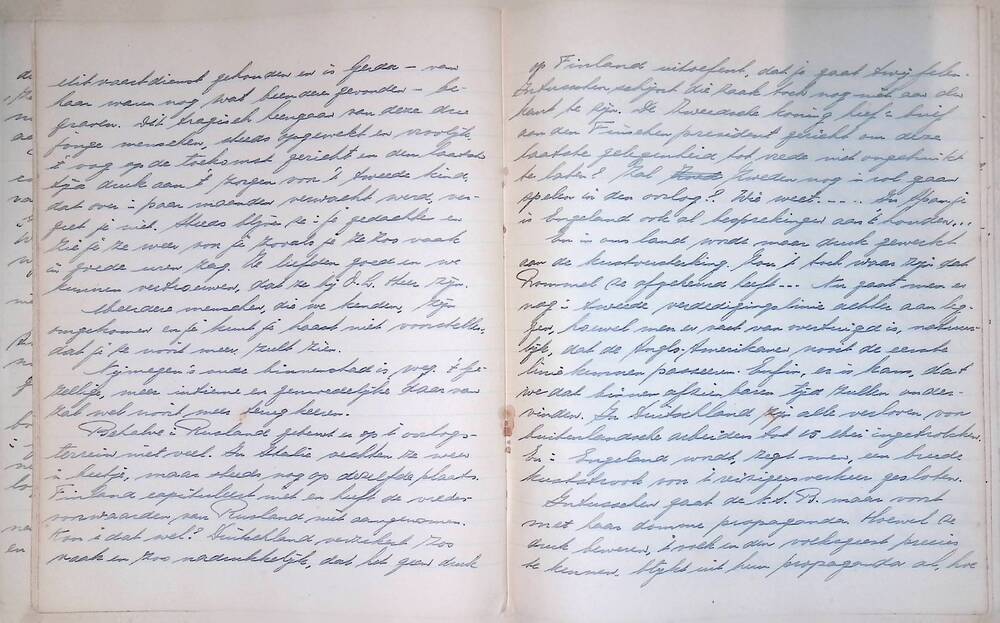 uitvaartdienst gehouden en is Gerda – van
haar waren nog wat beenderen gevonden – be-
graven. Dit tragisch heengaan van deze drie
jonge menschen, steeds opgewekt en vroolijk,
't oog op de toekomst gericht en den laatste
tijd druk aan 't zorgen voor 't tweede kind,
dat over 'n paar maanden verwacht werd, ver-
geet je niet. Steeds blijven ze in je gedachten en
zie je ze weer voor je zooals je ze zoo vaak
in goede uren zag. Ze liefden goed en we
kunnen vertrouwen, dat ze bij O.L. Heer zijn.
Meerdere menschen, die we kenden, zijn
omgekomen en je kunt je haast niet voorstellen,
dat je ze nooit meer zult zien.
Nijmegen's oude binnenstad is weg. 't Ge-
zellige, meer intieme en gemoedelijke daarvan
zal wel nooit meer terugkeeren.
Behalve in Rusland gebeurt er op 't oorlogs-
terrein niet veel. In Italië vechten ze weer
'n beetje, maar steeds nog op dezelfde plaats.
Finland capituleert niet en heeft de vredes-
voorwaarden van Rusland niet aangenomen.
Kon 't dat wel? Duitschland verzekert zoo
vaak en zoo nadrukkelijk, dat het geen druk
op Finland uitoefent, dat je gaat twijfelen.
Intusschen schijnt die zaak toch nog niet aan den
kant te zijn. De Zweedsche koning heeft 'n brief
aan den Finschen president gericht om deze
laatste gelegenheid tot vrede niet ongebruikt
te laten? Zal Zweden nog 'n rol gaan
spelen in den oorlog? Wie weet.... In Spanje
is Engeland ook al besprekingen aan 't houden...
En in ons land wordt maar druk gewerkt
aan de kustversterking. Zou 't toch waar zijn dat
Rommel ze afgekeurd heeft... Nu gaat men er
nog 'n tweede verdedigingslinie achter aan leg-
gen, hoewel men er vast van overtuigd is, natuur-
lijk, dat de Anglo-Amerikanen nooit de eerste
linie kunnen passeeren. Enfin, er is kans, dat
we dat binnen afzienbaren tijd zullen onder-
vinden. In Duitschland zijn alle verloven voor
buitenlandsche arbeiders tot 15 Mei ingetrokken.
En in Engeland wordt, zegt men, een breede
kuststrook voor 't reizigersverkeer gesloten.
Intusschen gaat de N.S.B. maar voort
met haar domme propaganda. Hoewel ze
druk beweren, 't volk en den volksgeest precies
te kennen, blijkt uit hun propaganda al, hoe